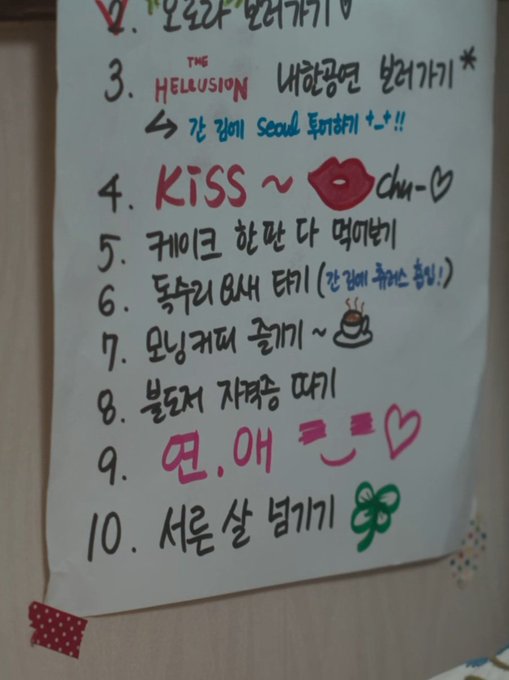 2. 오로라 보러가기♡
3. THE HELLUSION 내한공연 보러가기*
↳ 간 김에 Seoul 투어하기 +_+!!
4. KiSS ~ Chu-♡
5. 케이크 한 판 다 먹어보기
6. 독수리 요새 타기 (간 김에 츄러스 흡입!)
7. 모닝커피 즐기기~
8. 불도저 자격증 따기
9. 연.애 =‿= ♡
10. 서른 살 넘기기